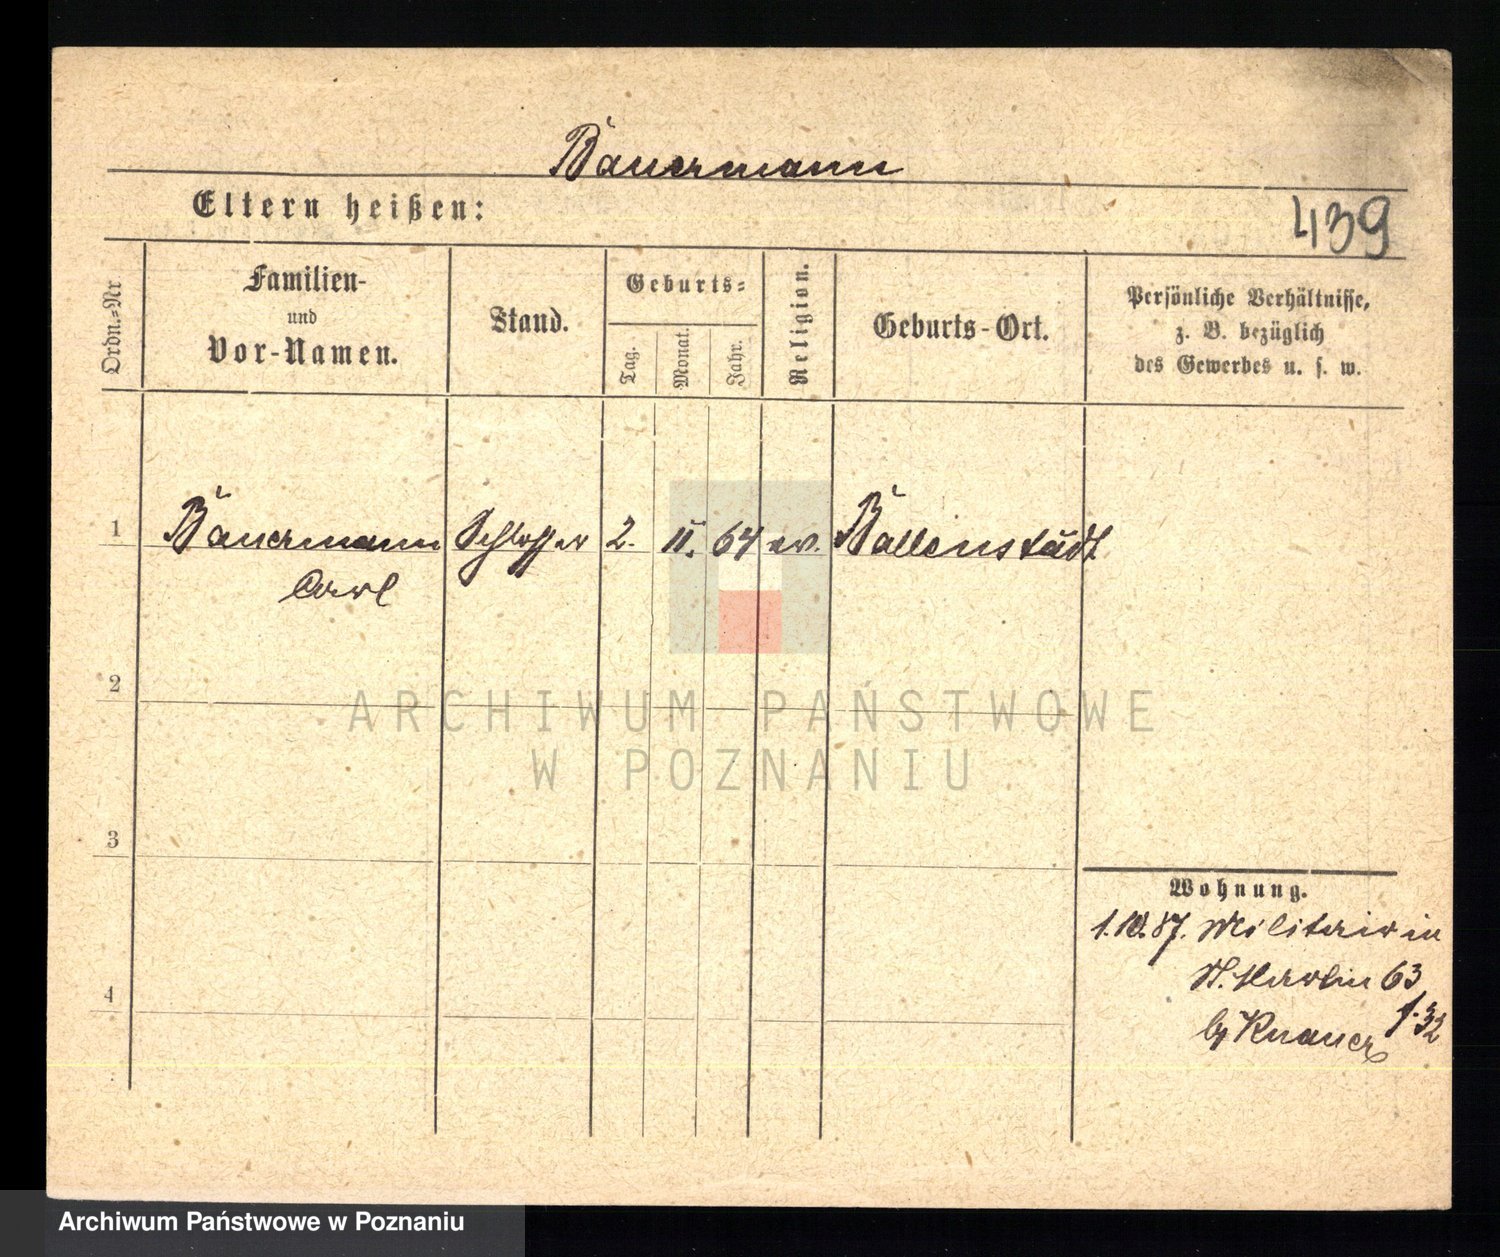 Bauermann
Eltern heißen:
439
Ordn.=Nr
Familien-
und
Vor-Namen.
Stand.
Geburts=
Tag.
Monat.
Jahr.
Religion.
Geburts-Ort.
Persönliche Verhältnisse,
z. B. bezüglich
des Gewerbes u. s. w.
1 Bauermann Schlosser 2. II. 64 ev. Ballenstädt
Carl
2
3
4
Wohnung.
1.10.87. Militair in
St. Martin 63
by Knauer f. 32
ARCHIWUM PAŃSTWOWE
W POZNANIU
Archiwum Państwowe w Poznaniu